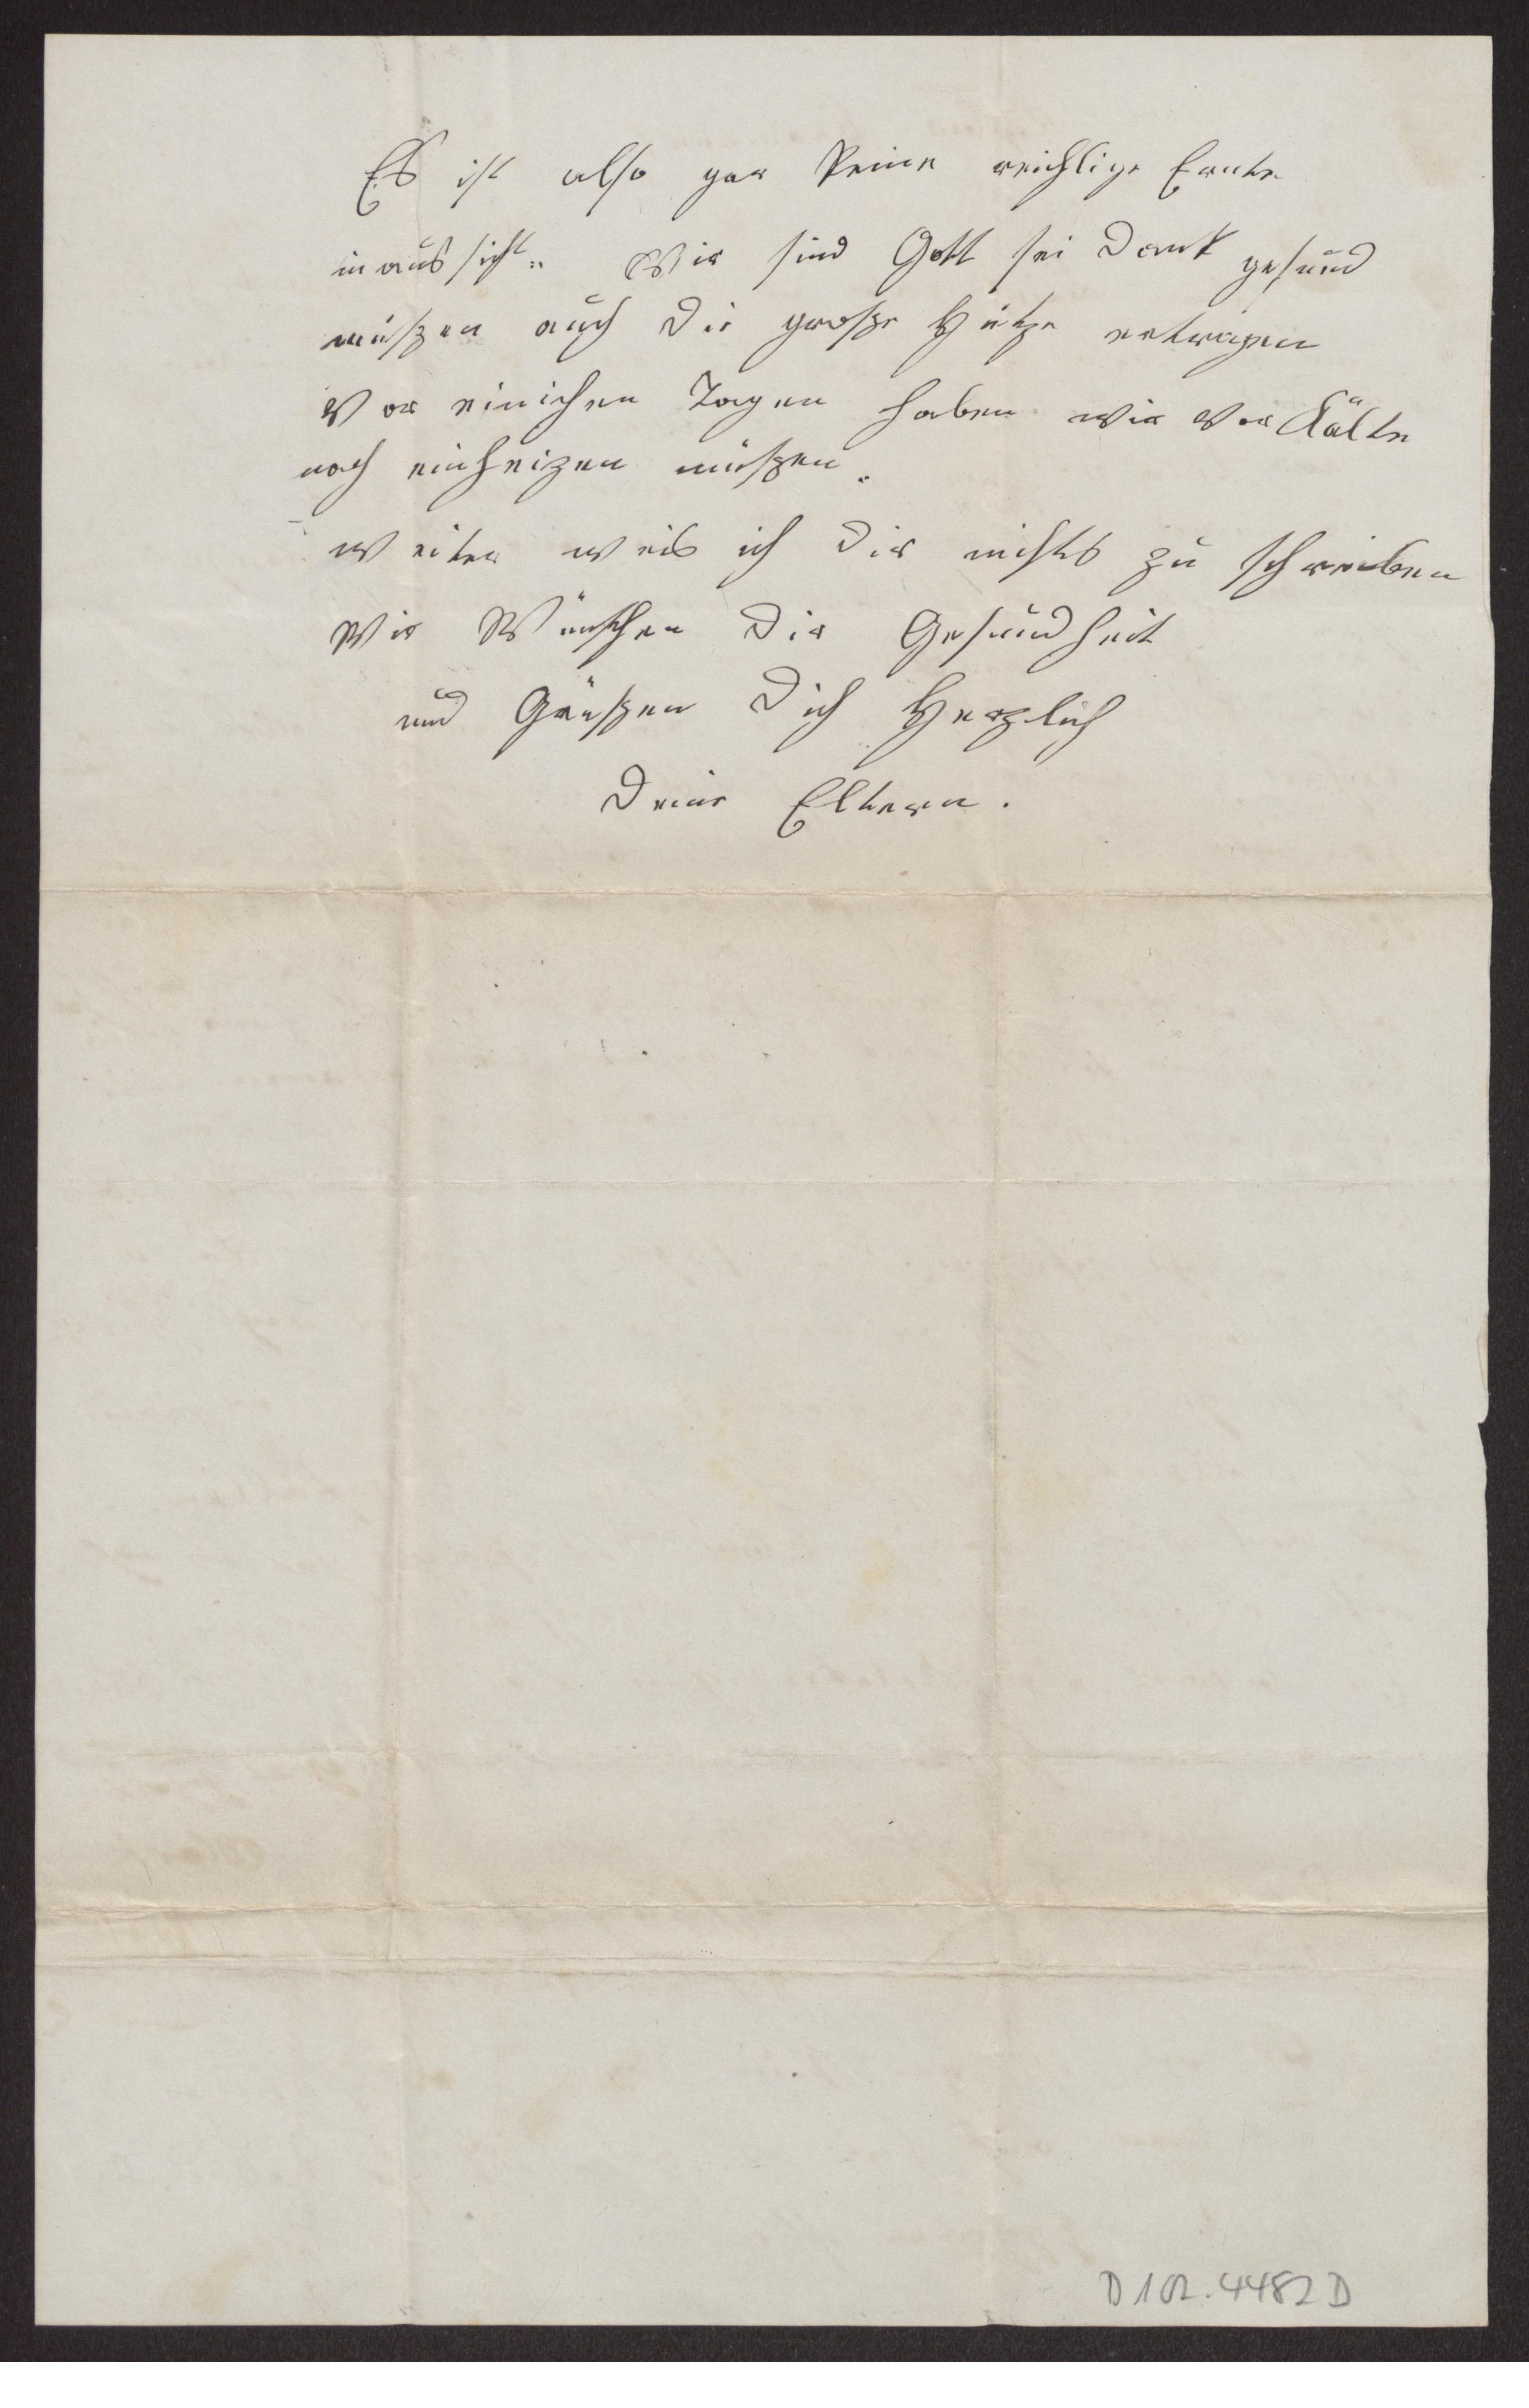 Es ist also gar keine reichlige Ernte
in aussicht. Wir sind Gott sei Dank gesund
müßen auch die große Hitze ertragen
Vor einichen Tagen haben wir vor Kälte
noch einheizen müßen.
Weiter weis ich dir nichts zu schreiben
Wir Wünschen dir Gesundheit
und Grüßen dich Herzlich
Deine Eltern.
D 102.4482 D